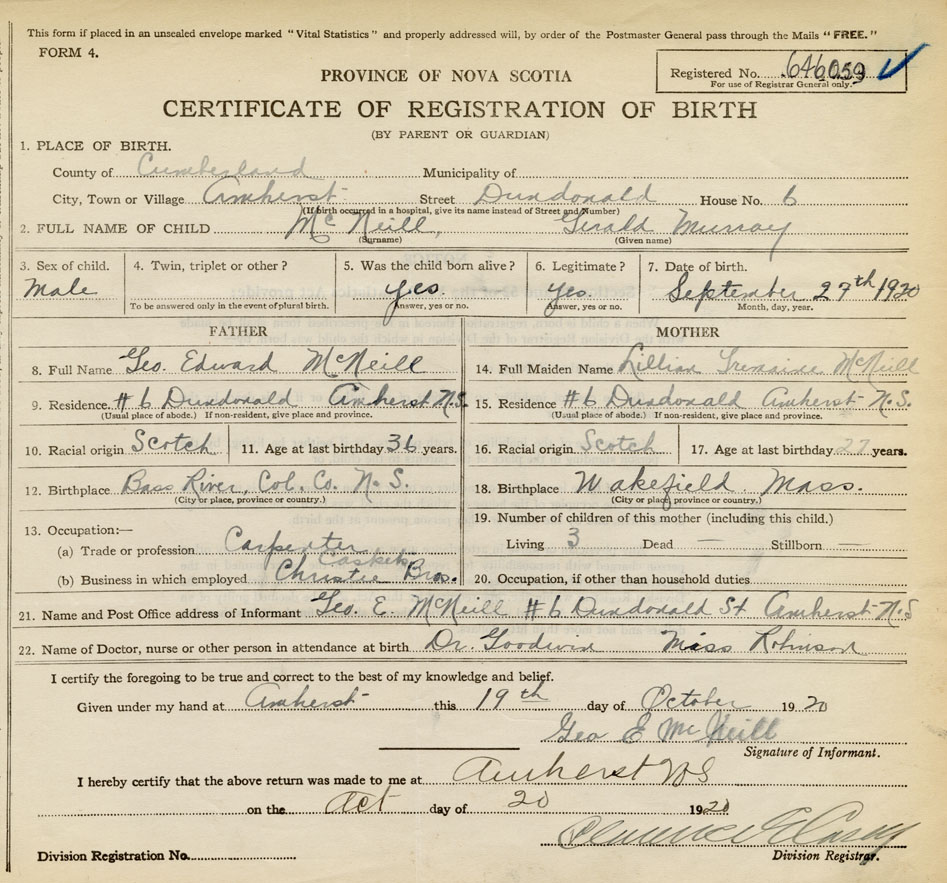 This form if placed in an unsealed envelope marked "Vital Statistics" and properly addressed will, by order of the Postmaster General pass through the Mails "FREE."
FORM 4.
Registered No. 646059
For use of Registrar General only.
PROVINCE OF NOVA SCOTIA
CERTIFICATE OF REGISTRATION OF BIRTH
(BY PARENT OR GUARDIAN)
1. PLACE OF BIRTH.
County of Cumberland Municipality of
City, Town or Village Amherst Street Dundonald House No. 6
(If birth occurred in a hospital, give its name instead of Street and Number)
2. FULL NAME OF CHILD McNeill, Gerald Murray
(Surname) (Given name)
3. Sex of child. 4. Twin, triplet or other? 5. Was the child born alive? 6. Legitimate? 7. Date of birth.
Male yes. yes. September 27th 1920
To be answered only in the event of plural birth. Answer, yes or no. Answer, yes or no. Month, day, year.
FATHER
8. Full Name Geo. Edward McNeill
9. Residence. #6 Dundonald Amherst N.S.
(Usual place of abode.) If non-resident, give place and province.
10. Racial origin Scotch 11. Age at last birthday 36 years.
12. Birthplace Bass River, Col. Co. N.S.
(City or place, province or country.)
13. Occupation:—
(a) Trade or profession Carpenter
Caskets
(b) Business in which employed Christie Bros.
MOTHER
14. Full Maiden Name Lillian Tremaine McNeill
15. Residence #6 Dundonald Amherst N.S.
(Usual place of abode.) If non-resident, give place and province.
16. Racial origin Scotch 17. Age at last birthday 27 years.
18. Birthplace Wakefield Mass.
(City or place, province or country.)
19. Number of children of this mother (including this child.)
Living 3 Dead — Stillborn —
20. Occupation, if other than household duties
21. Name and Post Office address of Informant Geo. E. McNeill #6 Dundonald St Amherst N.S
22. Name of Doctor, nurse or other person in attendance at birth Dr. Goodwin Miss Robinson
I certify the foregoing to be true and correct to the best of my knowledge and belief.
Given under my hand at Amherst this 19th day of October 1920
Geo E McNeill
Signature of Informant.
I hereby certify that the above return was made to me at Amherst NS
on the Oct day of 20 1920
Division Registration No.
Division Registrar.